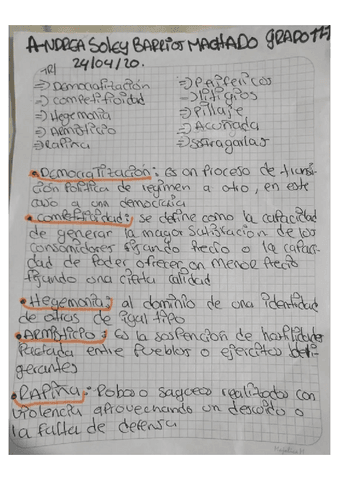 ANDREA SOLEY BARRIOS MACHADO GRADO 11-1
24/04/20.
TR/
⇒ Democratización ⇒ Paifericos
⇒ competitividad ⇒ Litigios
⇒ Hegemonia ⇒ Pillaje
⇒ Armisticio ⇒ Acuñada
⇒ Rapiña ⇒ Sufragarlas
• Democratización: es un proceso de transi
ción política de regimen a otro, en este
caso a una democracia
• competitividad: se define como la capacidad
de generar la mayor satisfacion de los
consumidores fijando precio o la capaci
dad de Poder ofrecer un menor Precio
fijando una cierta calidad
• Hegemonia: al dominio de una identidad
de otras de igual tipo
• ARMISTICIO: es la suspencion de hostilidades
Pactada entre Pueblos o ejercitos beli
gerantes
• RAPIÑA: Robo o saqueo realizados con
violencia aprovechando un descuido o
la falta de defensa